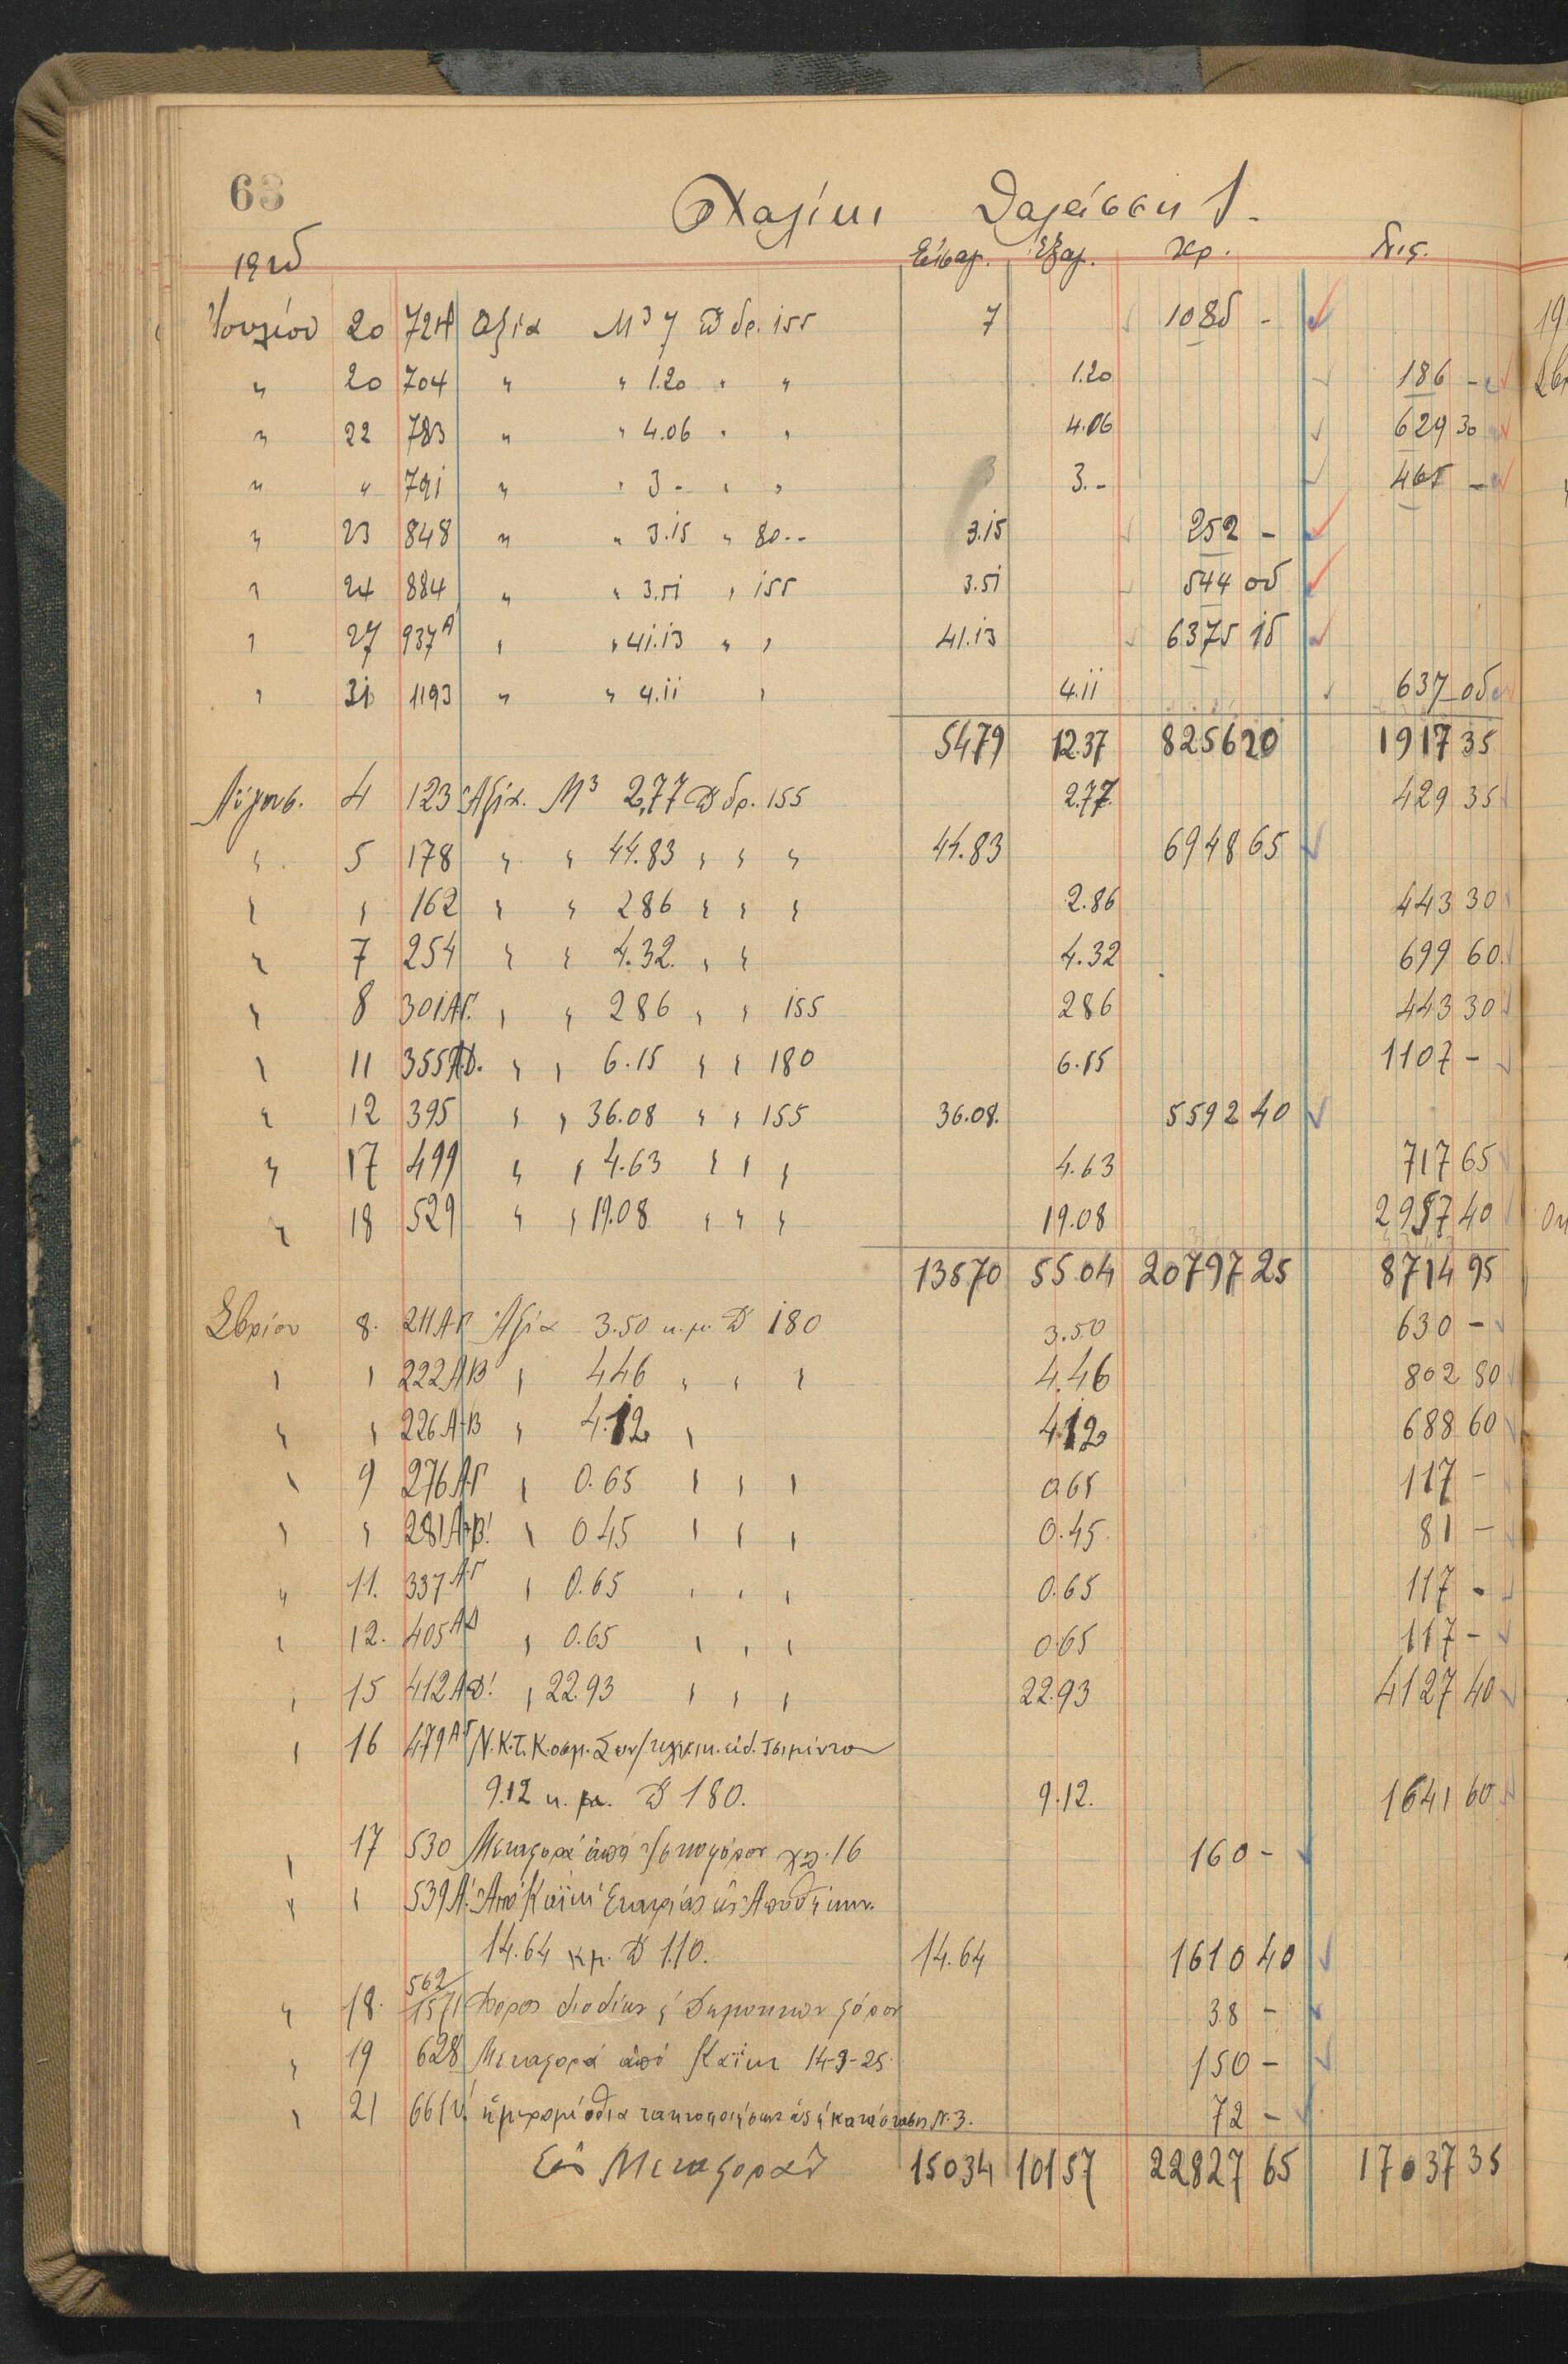 63
Χαλίκι Θαλάσσης
1925
Εἰσαγ. Ἐξαγ. Χρ. Πις.
Ἰουλίου 20 724 Ἀξία Μ3 7 δρ. 155 7 1085 -
" 20 704 " " 1.20 " " 1.20 186 -
" 22 783 " " 4.06 " " 4.06 629 30
" " 791 " " 3 - " " 3.- 465 -
" 23 848 " " 3.15 " 80.- 3.15 252 -
" 24 884 " " 3.51 " 155 3.51 544 05
" 27 937Α " " 41.13 " " 41.13 6375 15
" 31 1193 " " 4.11 " 4.11 637 05
5479 12.37 8256 20 1917 35
Αὐγουσ. 4 123 Ἀξία. Μ3 2,77 δρ. 155 2.77 429 35
" 5 178 " " 44.83 " " " 44.83 6948 65
" " 162 " " 286 " " " 2.86 443 30
" 7 254 " " 4.32 " " 4.32 699 60
" 8 301ΑΓ. " " 286 " " 155 286 443 30
" 11 355 " " 6.15 " " 180 6.15 1107 -
" 12 395 " " 36.08 " " 155 36.08. 5592 40
" 17 499 " " 4.63 " " " 4.63 717 65
" 18 529 " " 19.08 " " " 19.08 2957 40
13570 55.04 20797 25 8714 95
Σβρίου 8. 211 Α-Γ Ἀξία 3.50 κ.μ. 180 3.50 630 -
" " 222 ΑΒ " 446 " " " 4.46 802 80
" " 226 Α-Β " 4.12 " 4.12 688 60
" 9 276 ΑΓ " 0.65 " " " 065 117 -
" " 281 Α-Β! " 045 " " " 0.45. 81 -
" 11. 337 ΑΓ " 0.65 " " " 0.65 117 -
" 12. 405 ΑΔ " 0.65 " " " 065 117 -
" 15 412 " 22.93 " " " 22.93 4127 40
" 16 479 ΑΓ Ν.Κ.Τ. Κοσμ.
9.12 κ.μ. 180. 9.12. 1641 60
" 17 530 Μεταφορὰ ἀπὸ 16 160 -
" " 539Α! Ἀπὸ Καΐκι Ἑταιρίας εἰς Ἀποθήκην.
14.64 κμ. 110. 14.64 1610 40
" 18. 562/1571 Φόρος διοδίων Δημοτικῶν φόρων 38 -
" 19 628 Μεταφορά ἀπό Καΐκι 14-9-25. 150 -
" 21 661 ἡμερομίσθια τακτοποιήσεως κατάστασις Ν. 3. 72 -
Εἰς Μεταφοράν 15034 10157 22827 65 17037 35